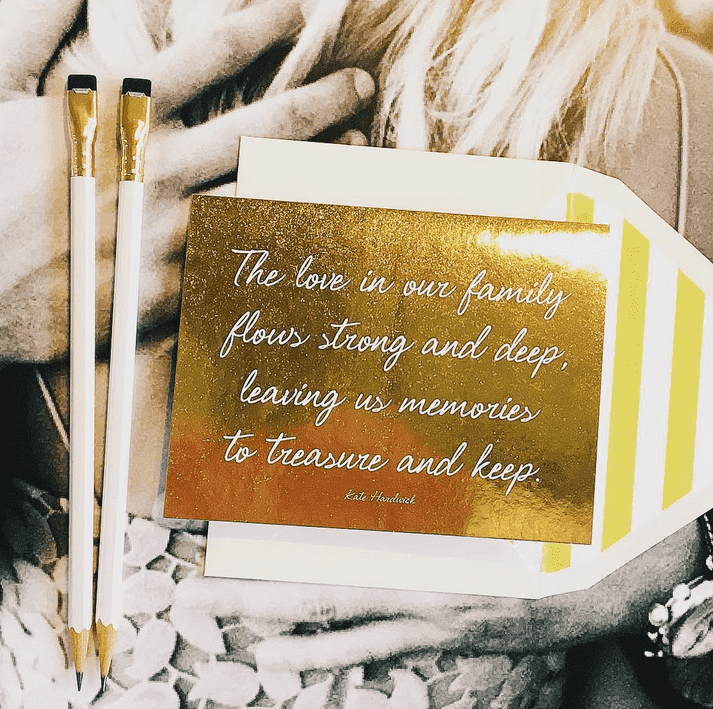 The love in our family
flows strong and deep,
leaving us memories
to treasure and keep.
Kate Hardwick